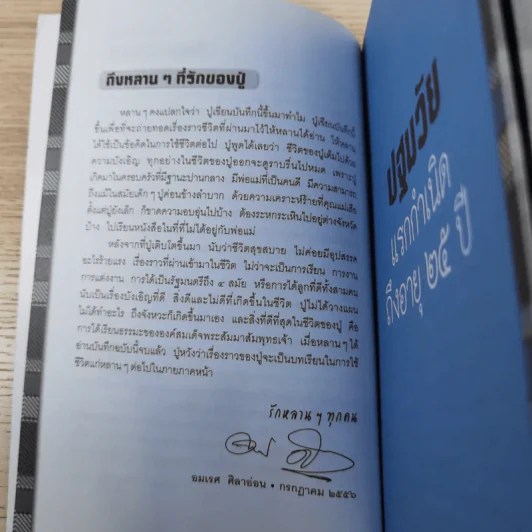 ถึงหลาน ๆ ที่รักของปู่
หลาน ๆ คงแปลกใจว่า ปู่เขียนบันทึกนี้ขึ้นมาทำไม ปู่เขียนบันทึกนี้
ขึ้นเพื่อที่จะถ่ายทอดเรื่องราวชีวิตที่ผ่านมาไว้ให้หลานได้อ่าน ให้หลาน
ได้ใช้เป็นข้อคิดในการใช้ชีวิตต่อไป ปู่พูดได้เลยว่า ชีวิตของปู่เต็มไปด้วย
ความบังเอิญ ทุกอย่างในชีวิตของปู่ออกจะดูราบรื่นไปหมด เพราะปู่
เกิดมาในครอบครัวที่มีฐานะปานกลาง มีพ่อแม่ที่เป็นคนดี มีความสามารถ
ถึงแม้ในสมัยเด็กๆ ปู่ค่อนข้างลำบาก ด้วยความเคราะห์ร้ายที่คุณแม่เสีย
ตั้งแต่ปู่ยังเล็ก ก็ขาดความอบอุ่นไปบ้าง ต้องระหกระเหินไปอยู่ต่างจังหวัด
บ้าง ไปเรียนหนังสือในที่ที่ไม่ได้อยู่กับพ่อแม่
หลังจากที่ปู่เติบโตขึ้นมา นับว่าชีวิตสุขสบาย ไม่ค่อยมีอุปสรรค
อะไรร้ายแรง เรื่องราวที่ผ่านเข้ามาในชีวิต ไม่ว่าจะเป็นการเรียน การงาน
การแต่งงาน การได้เป็นรัฐมนตรีถึง ๔ สมัย หรือการได้ลูกที่ดีทั้งสามคน
นับเป็นเรื่องบังเอิญที่ดี สิ่งดีและไม่ดีที่เกิดขึ้นในชีวิต ปู่ไม่ได้วางแผน
ไม่ได้ทำอะไร ถึงจังหวะก็เกิดขึ้นมาเอง และสิ่งที่ดีที่สุดในชีวิตของปู่ คือ
การได้เรียนธรรมะขององค์สมเด็จพระสัมมาสัมพุทธเจ้า เมื่อหลาน ๆ ได้
อ่านบันทึกฉบับนี้จบแล้ว ปู่หวังว่าเรื่องราวของปู่จะเป็นบทเรียนในการใช้
ชีวิตแก่หลาน ๆ ต่อไปในภายภาคหน้า
รักหลาน ๆ ทุกคน
อมเรศ ศิลาอ่อน • กรกฎาคม ๒๕๕๖
ปฐมวัย
แรกกำเนิด
ถึงอายุ ๒๕ ปี